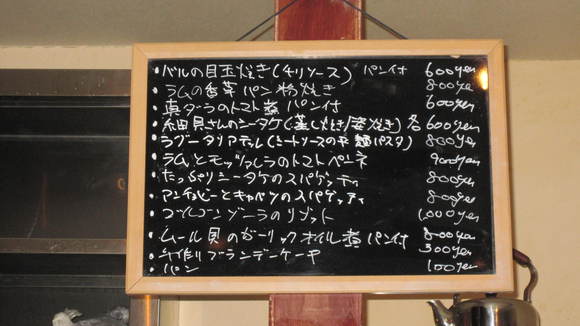 ・バルの目玉焼き(チリソース) パン付 600yen
・ラムの香草パン粉焼き 800yen
・真ダラのトマト煮 パン付 600yen
・細田さんのシータケ(蒸し焼き/姿焼き)各600yen
・ラグータリアテッレ(ミートソースの平麺パスタ) 800yen
・ラムとモッツァレラのトマトペンネ 900yen
・たっぷりシータケのスパゲッティ 800yen
・アンチョビーとキャベツのスパゲッティ 800yen
・ゴルゴンゾーラのリゾット 1,000yen
・ムール貝のガーリックオイル煮 パン付 800yen
・手作りブランデーケーキ 300yen
・パン 100yen